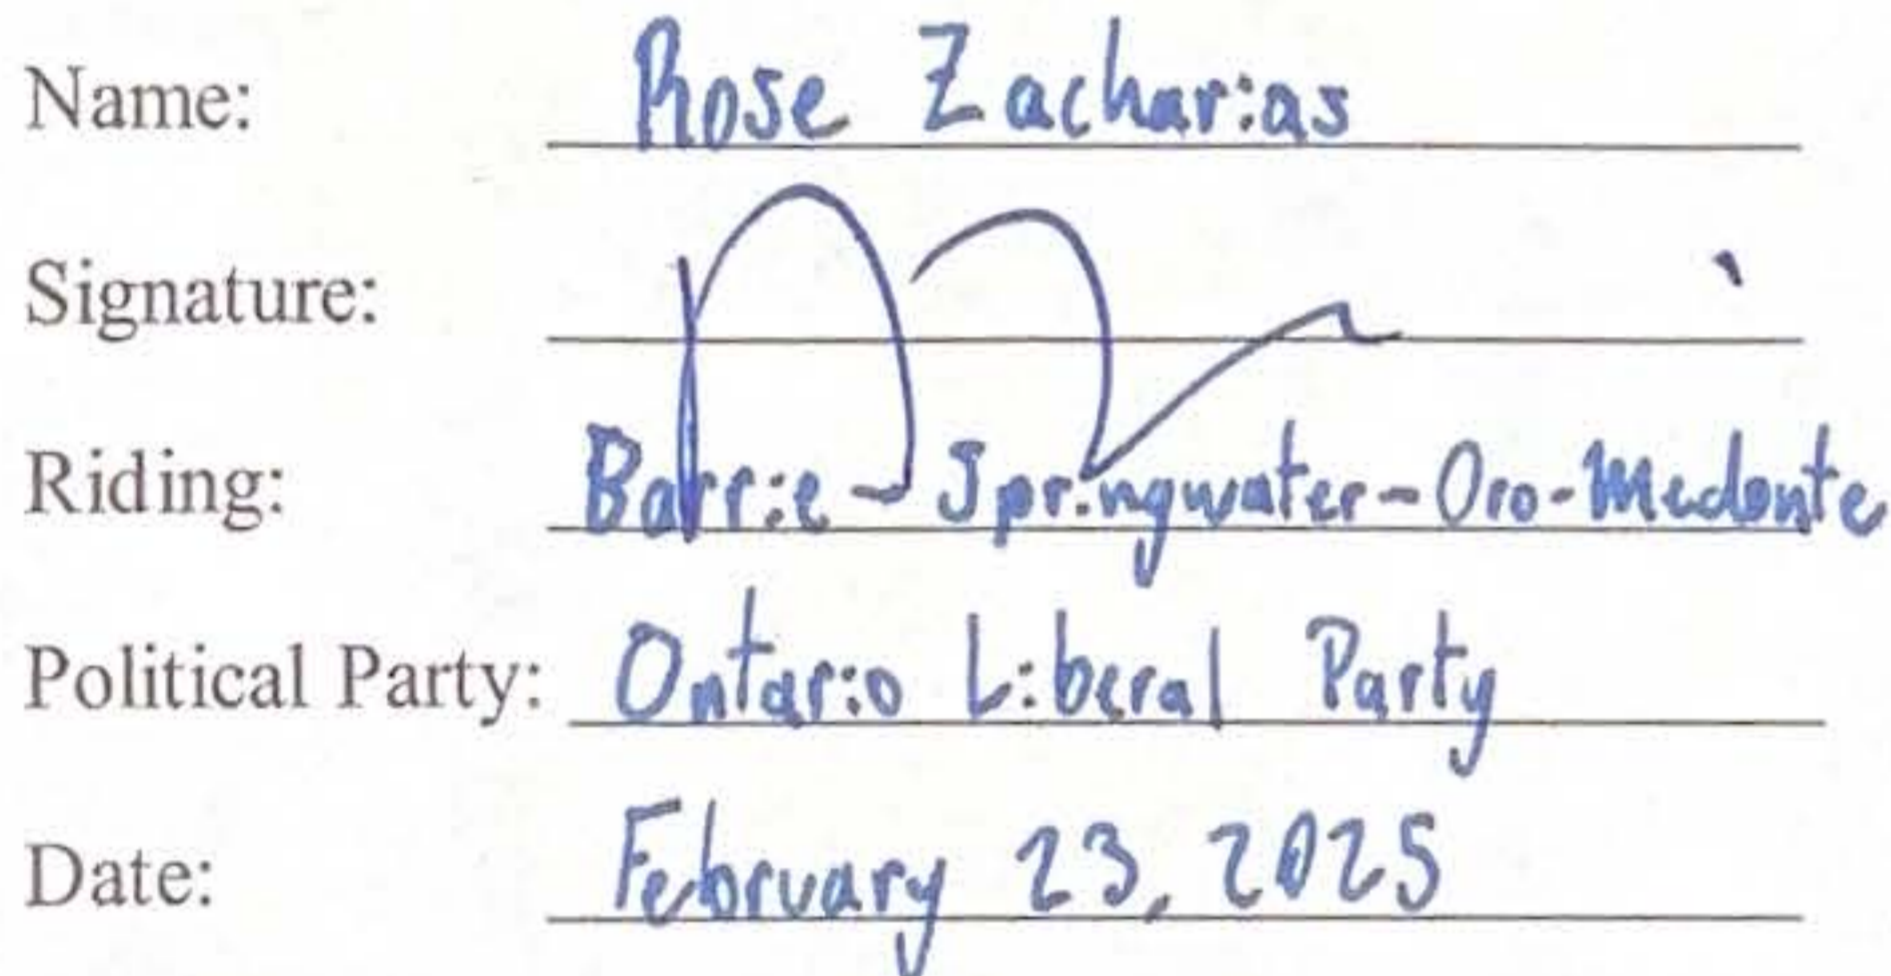 Name: Rose Zacharias
Signature:
Riding: Barrie - Springwater - Oro - Medonte
Political Party: Ontario Liberal Party
Date: February 23, 2025